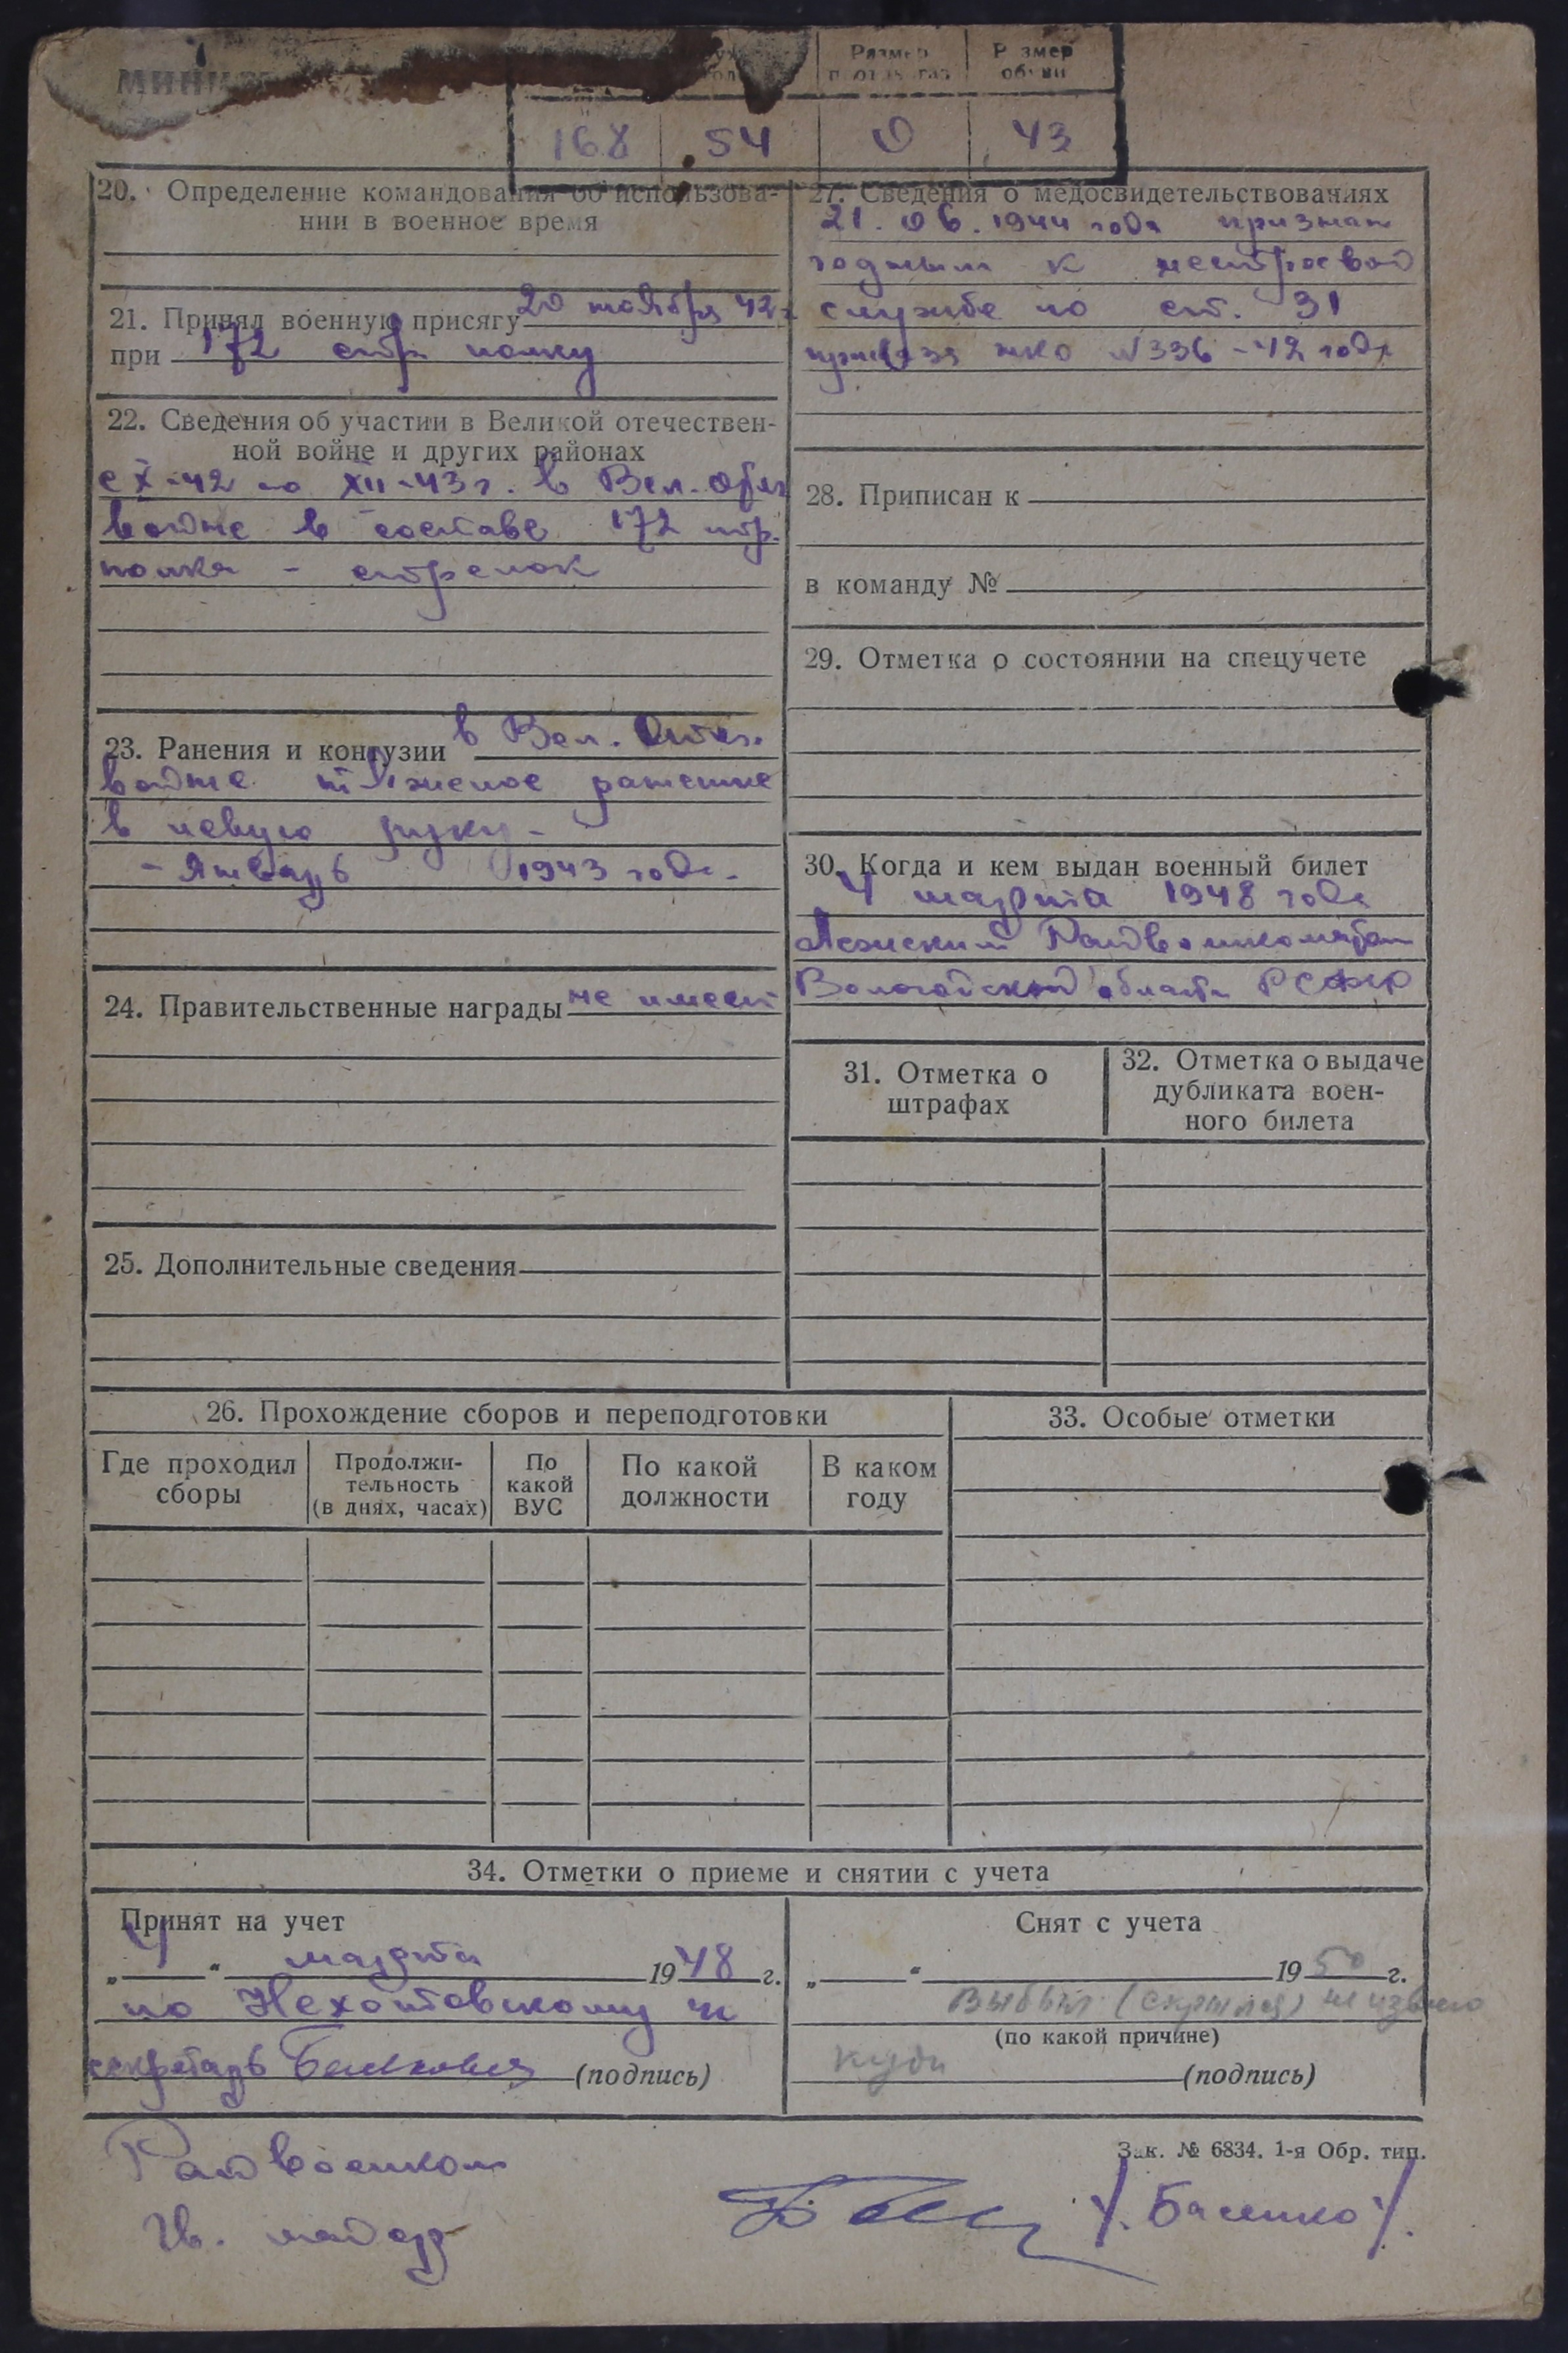 Размер
Р змер
168 54 0 43
20. Определение командования об использова-
нии в военное время
21. Принял военную присягу 20 ноября 42 г
при 172 стр полку
22. Сведения об участии в Великой отечествен-
ной войне и других районах
с X-42 по XII-43 г. в Вел. Отеч
войне в составе 172 стр.
полка - стрелок
23. Ранения и контузии в Вел. Отеч.
войне тяжелое ранение
в левую руку -
- Январь 1943 года.
24. Правительственные награды не имеет
25. Дополнительные сведения
27. Сведения о медосвидетельствованиях
21. 06. 1944 года признан
годным к нестроевой
службе по ст. 31
приказа нко №336-42 года
28. Приписан к
в команду №
29. Отметка о состоянии на спецучете
30. Когда и кем выдан военный билет
4 марта 1948 года
Лежским Райвоенкоматом
Вологодской области РСФСР
31. Отметка о
штрафах
32. Отметка о выдаче
дубликата воен-
ного билета
26. Прохождение сборов и переподготовки
Где проходил
сборы
Продолжи-
тельность
(в днях, часах)
По
какой
ВУС
По какой
должности
В каком
году
33. Особые отметки
34. Отметки о приеме и снятии с учета
Принят на учет
„4“ марта 1948 г.
по Нехотовскому
секретарь (подпись)
Снят с учета
„ “ 1950 г.
Выбыл (скрылся) неизвестно
(по какой причине)
куда
(подпись)
Зак. № 6834. 1-я Обр. тип.
Райвоенком
Гв. майор
/. Басенко /.